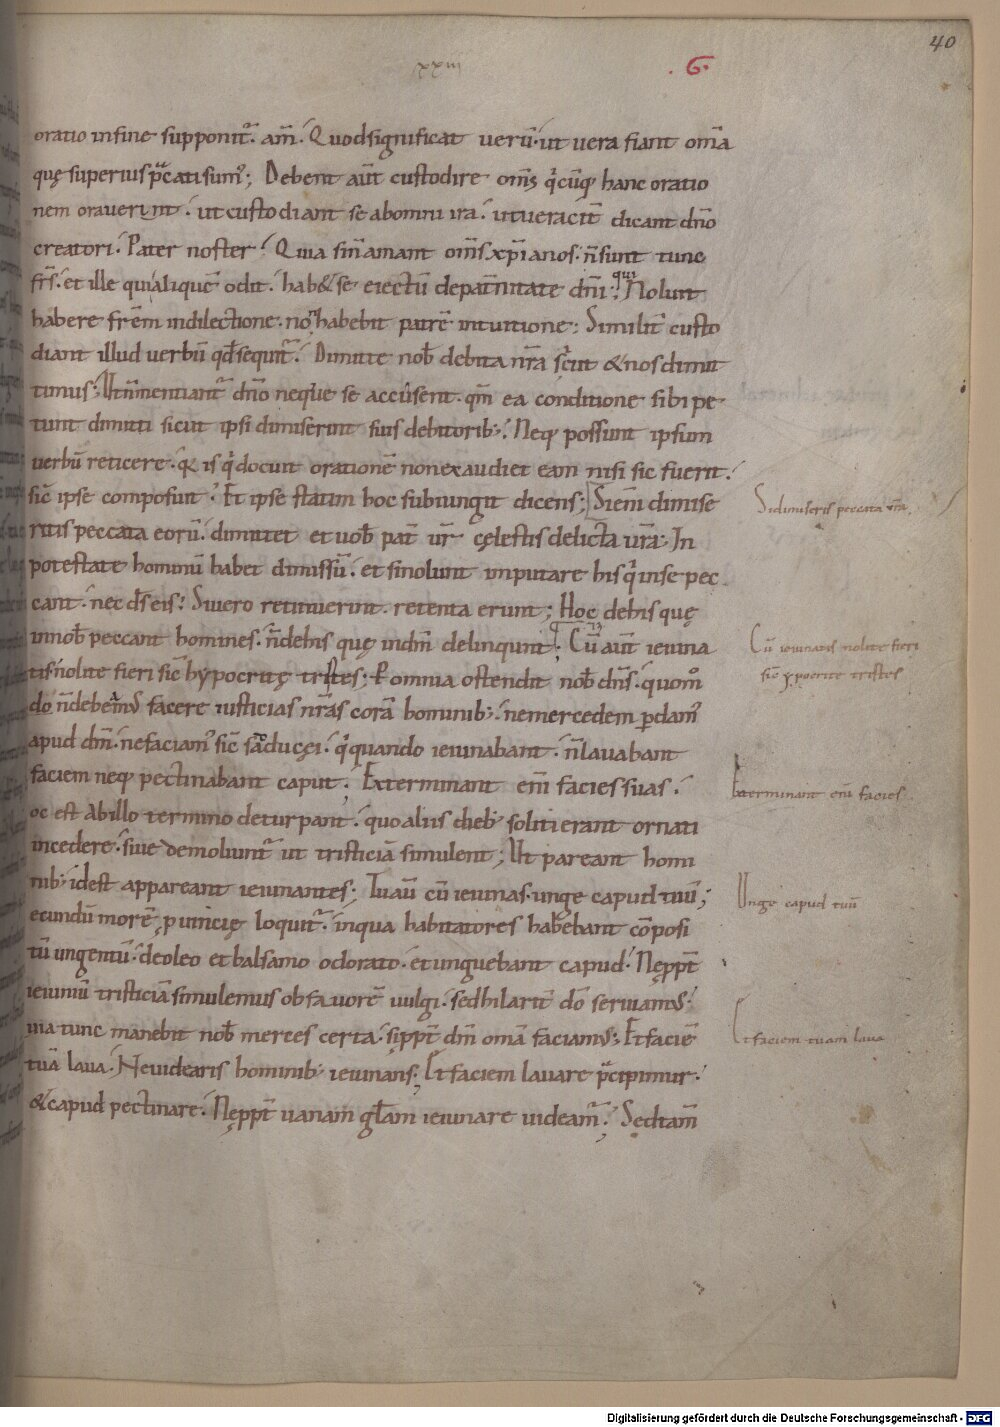 40
xxiii
.G.
oratio in fine supponit᷑. am̄. Quod significat verū. ut vera fiant om̄a
quę superius p̄cati sumꝰ; Debent aut̄ custodire om̄s q̇cūq; hanc oratio
nem oraverint. ut custodiant se ab omni ira. ut veracit̄ dicant dn̄o
creatori. Pater noster. Quia si n̄ amant om̄s xp̄ianos. n̄ sunt tunc
fr̄s. et ille qui aliquē odit. hab& se eiectū de pat̄nitate dn̄i; qui Noluit
habere fr̄em in dilectione. non habebit patrē in tuitione; Similit̄ custo
diant illud verbū qd̄ sequit᷑. Dimitte nob̄ debita nr̄a sicut & nos dimit
timus; Ut n̄ mentiant᷑ dn̄o neque se accusent. qm̄ ea conditione sibi pe
tunt dimitti sicut ipsi dimiserint suis debitorib;. Neq; possunt ipsum
verbū reticere. q̄ is q̇ docuit orationē non exaudiet eam nisi sic fuerit.
sic̄ ipse composuit. Et ipse statim hoc subiungit dicens; Si eni̅ dimise
ritis peccata eorū. dimittet et vob̄ pat̄ vr̄ cęlestis delicta vr̄a. In
potestate hominū habet dimissū. et si nolunt imputare his q̇ in se pec
cant. nec d̄s eis. Si vero retinuerint. retenta erunt; Hoc de his quę
in nob̄ peccant homines. n̄ de his quę in dm̄ delinquunt; Cū aut̄ ieiuna
tis. nolite fieri sic̄ hypocritę tristes; Romnia ostendit nob̄ dn̄s. quomō
do n̄ debeamꝰ facere iusticias nr̄as corā hominib;. ne mercedem ꝑdamꝰ
apud dm̄. ne faciamꝰ sic̄ saducęi. q̇ quando ieiunabant. n̄ lavabant
faciem neq; pectinabant caput. Exterminant eni̅ facies suas.
oc est Ab illo termino deturpant. quo aliis dieb; soliti erant ornati
incedere. sive demoliunt᷑ ut tristiciā simulent; Ut pareant homi
nib; id est appareant ieiunantes; Tu aū cū ieiunas. unge capud tuū;
ecundū morē ꝓvincię loquit᷑. in qua habitatores habebant cōposi
tū ungentū. de oleo et balsamo odorato. et unguebant capud. Ne ꝓpt̄
ieiuniū tristiciā simulemus ob favorē vulgi. sed hilarit̄ dō serviamꝰ.
uia tunc manebit nob̄ merces certa. si ꝓpt̄ dm̄ om̄a faciamꝰ; Et faciē
tuā lava. Ne videaris hominib; ieiunans; Et faciem lavare p̄cipimur.
& capud pectinare. Ne ꝓpt̄ vanam gl̄am ieiunare videam᷑. Sed tam̄
Si dimiseris peccata vr̄a
Cū ieiunatis nolite fieri
sic̄ ypocrite tristes
Exterminant eni̅ facies
Unge capud tuū
Et faciem tuam lava
Digitalisierung gefördert durch die Deutsche Forschungsgemeinschaft - DFG